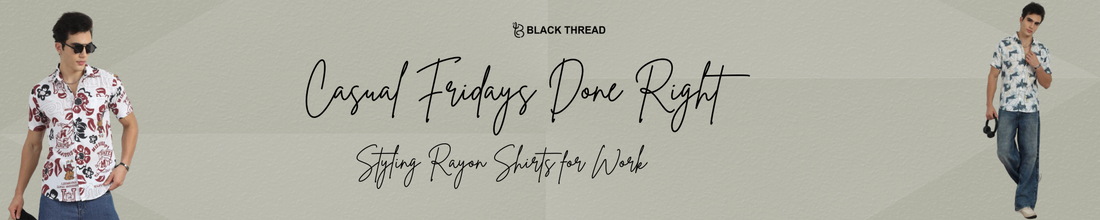 BLACK THREAD
Casual Fridays Done Right
Styling Rayon Shirts for Work